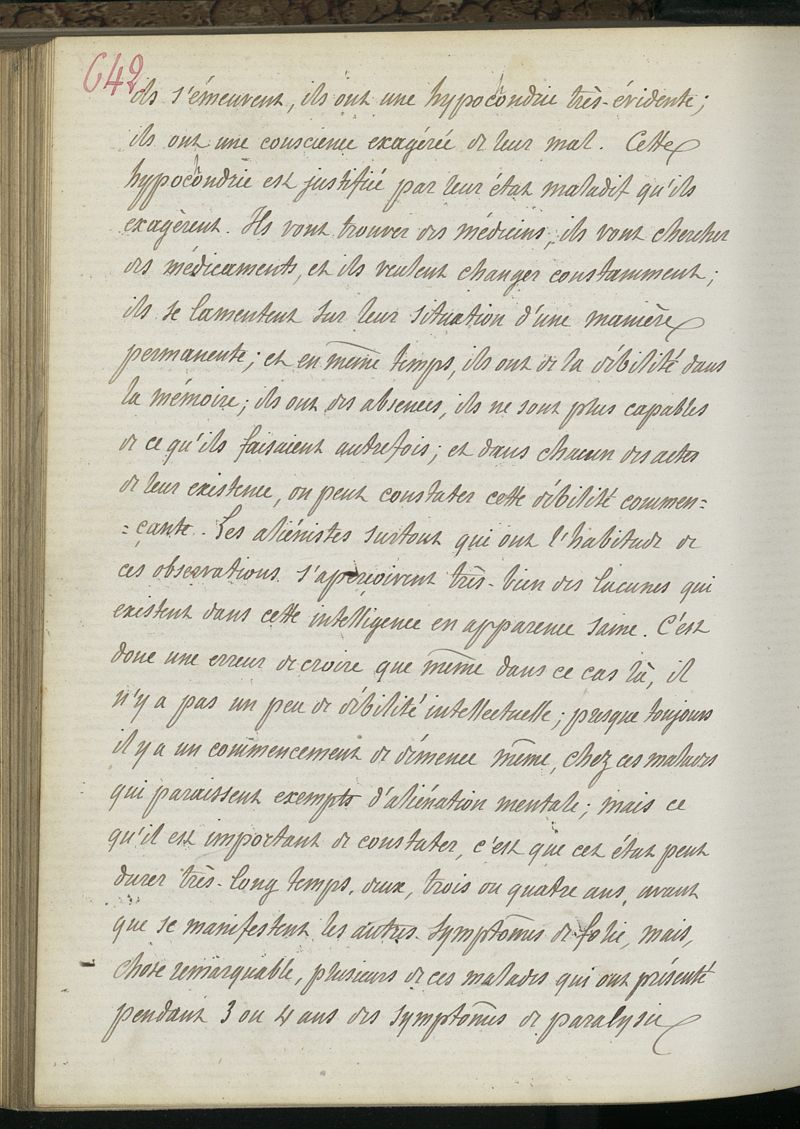 642
ils s'émeuvent, ils ont une hypocondrie très-évidente;
ils ont une conscience exagérée de leur mal. Cette
hypocondrie est justifiée par leur état maladif qu'ils
exagèrent. Ils vont trouver des médecins, ils vont chercher
des médicaments, et ils veulent changer constamment;
ils se lamentent sur leur situation d'une manière
permanente; et en même temps, ils ont de la débilité dans
la mémoire; ils ont des absences, ils ne sont plus capables
de ce qu'ils faisaient autrefois; et dans chacun des actes
de leur existence, on peut constater cette débilité commen=
=çante. Les aliénistes surtout qui ont l'habitude de
ces observations s'aperçoivent très-bien des lacunes qui
existent dans cette intelligence en apparence saine. C'est
donc une erreur de croire que même dans ce cas là, il
n'y a pas un peu de débilité intellectuelle; presque toujours
il y a un commencement de démence même, chez ces malades
qui paraissent exempts d'aliénation mentale; mais ce
qu'il est important de constater, c'est que cet état peut
durer très-long temps, deux, trois ou quatre ans, avant
que se manifestent les autres symptômes de folie, mais,
chose remarquable, plusieurs de ces malades qui ont présenté
pendant 3 ou 4 ans des symptômes de paralysie